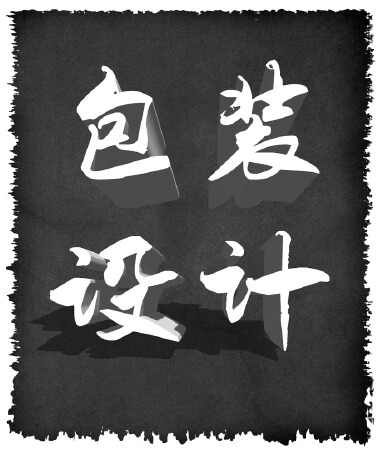 包装
设计